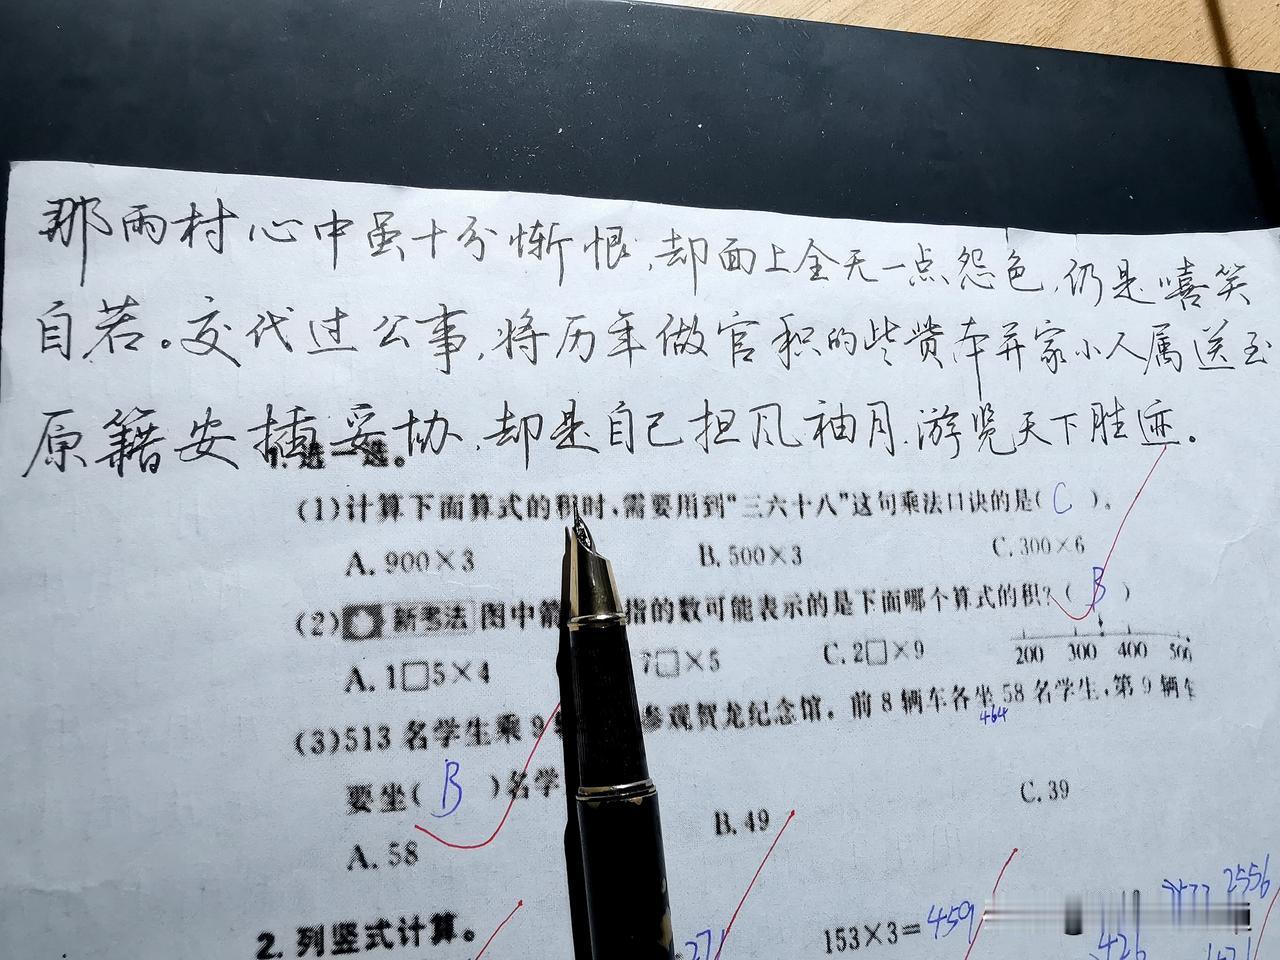 那雨村心中虽十分惭恨,却面上全无一点怨色,仍是嘻笑
自若。交代过公事,将历年做官积的些赀本并家小人属送至
原籍安插妥协,却是自己担风袖月,游览天下胜迹。
1.选一选。
(1)计算下面算式的积时,需要用到“三六十八”这句乘法口诀的是( C )。
A.900×3 B.500×3 C.300×6
(2) 新考法 图中箭 指的数可能表示的是下面哪个算式的积?( B )
A.1□5×4 7□×5 C.2□×9
200 300 400 500
(3)513名学生乘9 参观贺龙纪念馆。前8辆车各坐58名学生,第9辆车
464
要坐( B )名学
A.58 B.49 C.39
2.列竖式计算。
271 153×3=459 426 2556